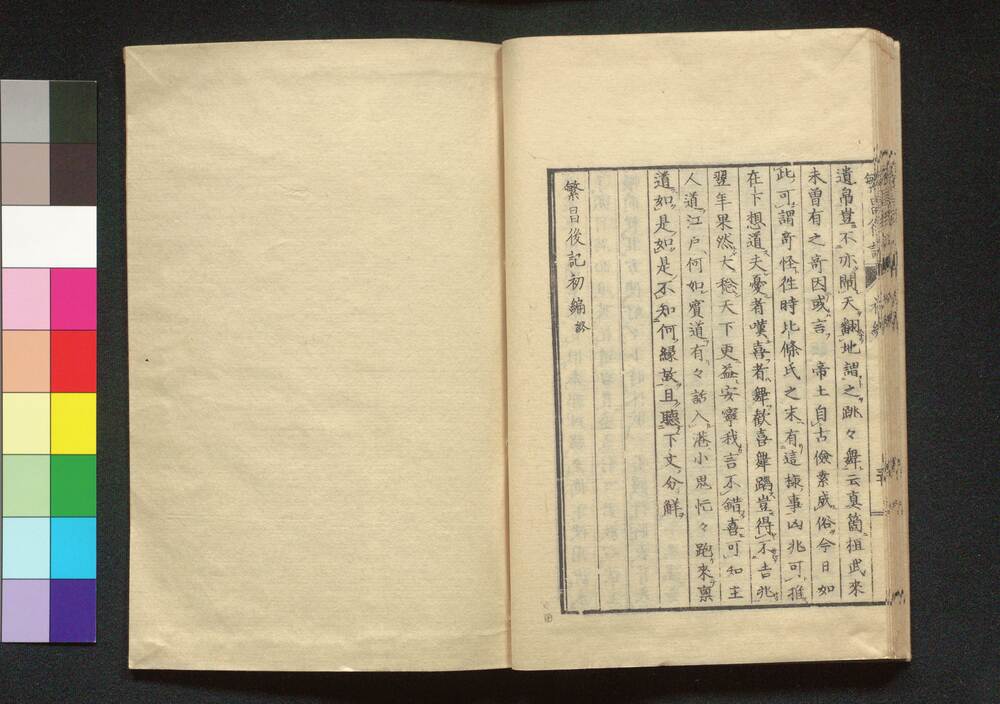 遺帛豈不亦鬧天翻地謂之跳々舞云真箇植武來
未曽有之奇因或言帝土自古儉素威俗今日如
此可謂奇怪徃時北條氏之末有這樣事凶兆可推
在下想道夫憂者嘆喜者舞歓喜舞蹈豈得不吉兆
翌年果然大稔天下更益安寧我言不錯喜可知主
人道江戸何如賓道有々話入港小思忙々跑來禀
道如是如是不知何縁故且聽下文分觧
繁昌後記初編終